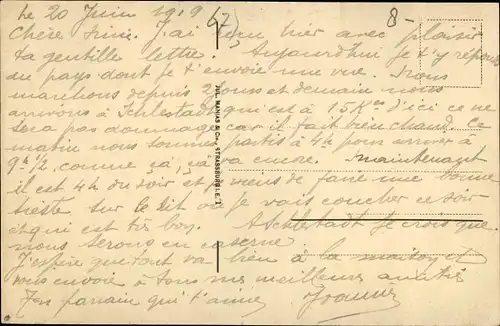 Le 20 Juin 1919
67
8-
Chère Mimi. J'ai reçu hier avec plaisir
ta gentille lettre. Aujourd'hui je t'y réponds
du pays dont je t'envoie une vue. Nous
marchons depuis 2 jours et demain nous
arrivons à Schlestadt qui est à 15 Kms d'ici ce ne
sera pas dommage car il fait bien chaud. Ce
matin nous sommes partis à 4h pour arriver à
9h 1/2 comme ça, ça va encore. Maintenant
il est 4h du soir et je viens de faire une bonne
sieste sur le lit où je vais coucher ce soir
et qui est très bon. A Schlestadt je crois que
nous serons en caserne
J'espère que tout va bien à la maison et
vous envoie à tous mes meilleures amitiés
Ton parrain qui t'aime
JUL. MANIAS & Cie., STRASSBURG i. E.